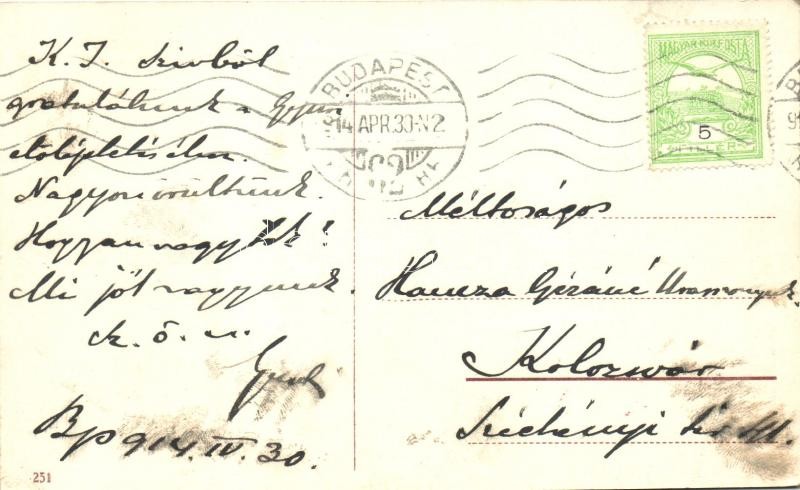 K. J. Szivből
gratulálunk a Gyuri
előléptetéséhez.
Nagyon örültünk.
Hogyan vagytok?
Mi jól vagyunk.
Bp 914. IV. 30.
251
BUDAPEST
914 APR.30-N2
MAGYAR KIR. POSTA
5
FILLÉR
Méltóságos
Hamza Gézáné Urasszonynak
Kolozsvár
Széchényi tér